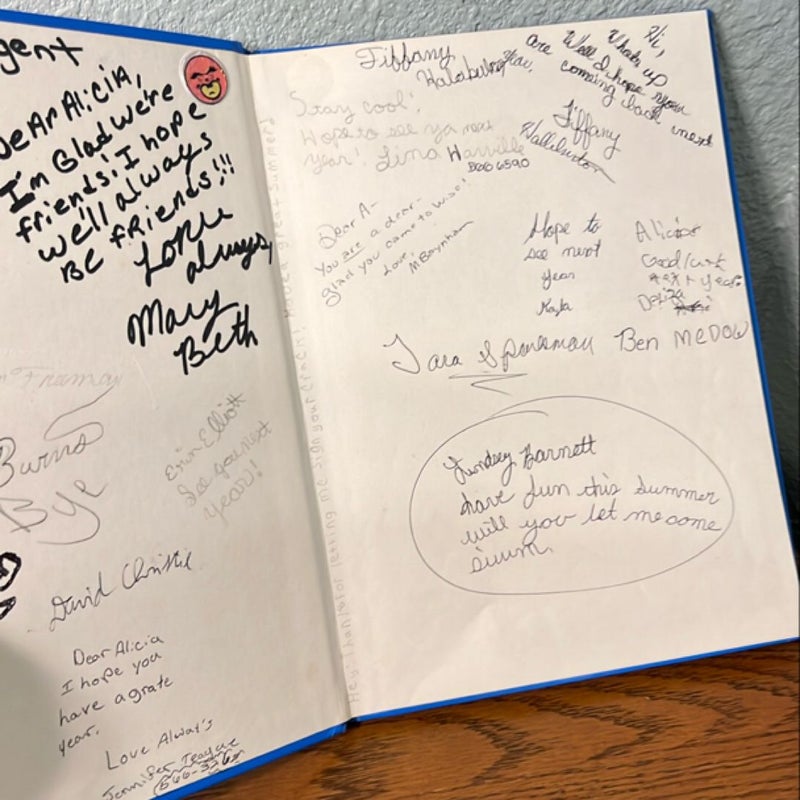 gent
Dear Alicia,
I'm Glad we're
friends! I hope
we'll always
Be friends!!!
Love
always,
Mary
Beth
Framay
Burns
Bye
Erin Elliott
See you next
year!
David Christie
Dear Alicia
I hope you
have a grate
year.
Love Alway's
Jennifer Teague
Hey! Thanks for letting me sign your crack! Have a great summer!
Tiffany
Hi,
Whats up
Well I hope your
are coming back next
year,
Tiffany
Stay cool!
Hope to see ya next
year! Lina Harville
566 6590
Dear A-
You are a dear-
glad you came to
Love,
M Boynham
Hope to
see next
year
Kayla
Alicia
Good luck
next year
Tara Sparkman
Ben McDow
Lindsey Barnett
have fun this summer
will you let me come
swim